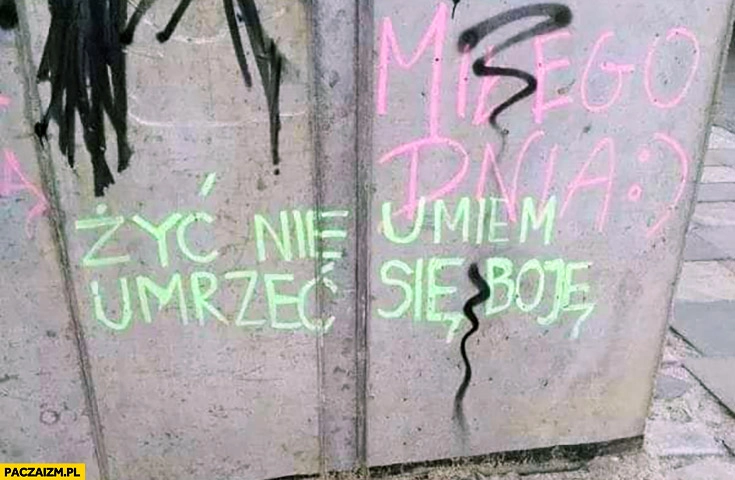 MIŁEGO
DNIA :)
ŻYĆ NIE UMIEM
UMRZEĆ SIĘ BOJĘ
PACZAIZM.PL